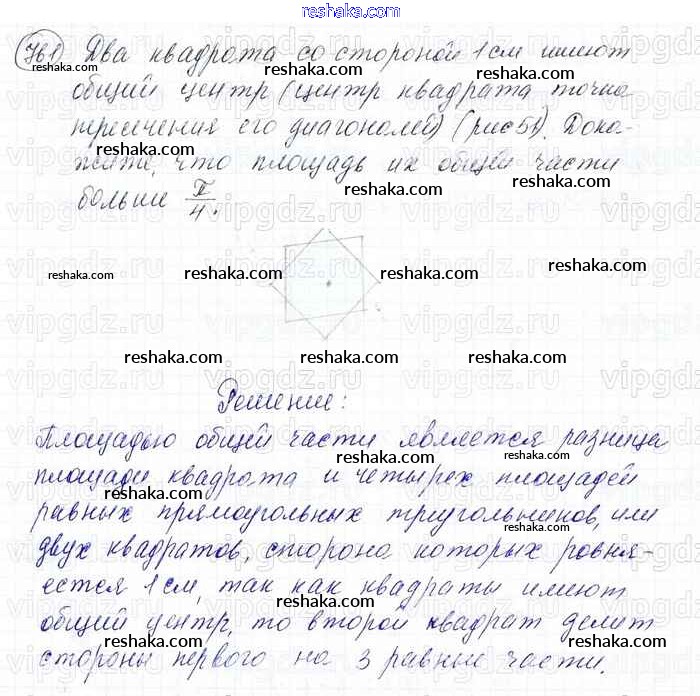 reshaka.com
761 Два квадрата со стороной 1 см имеют
reshaka.com reshaka.com reshaka.com
общий центр (центр квадрата точка
пересечения его диагоналей) (рис 51). Дока-
reshaka.com reshaka.com
жите, что площадь их общей части
reshaka.com
больше π/4.
vipgdz.ru vipgdz.ru vipgdz.ru vipgdz.ru
reshaka.com reshaka.com reshaka.com
vipgdz.ru vipgdz.ru vipgdz.ru vipgdz.ru
reshaka.com reshaka.com reshaka.com
Решение:
Площадью общей части является разница
reshaka.com reshaka.com
площади квадрата и четырех площадей
reshaka.com
равных прямоугольных треугольников, или
reshaka.com
двух квадратов, сторона которых ровня-
reshaka.com
ется 1 см, так как квадраты имеют
reshaka.com
общий центр, то второй квадрат делит
reshaka.com reshaka.com
стороны первого на 3 равные части.
reshaka.com